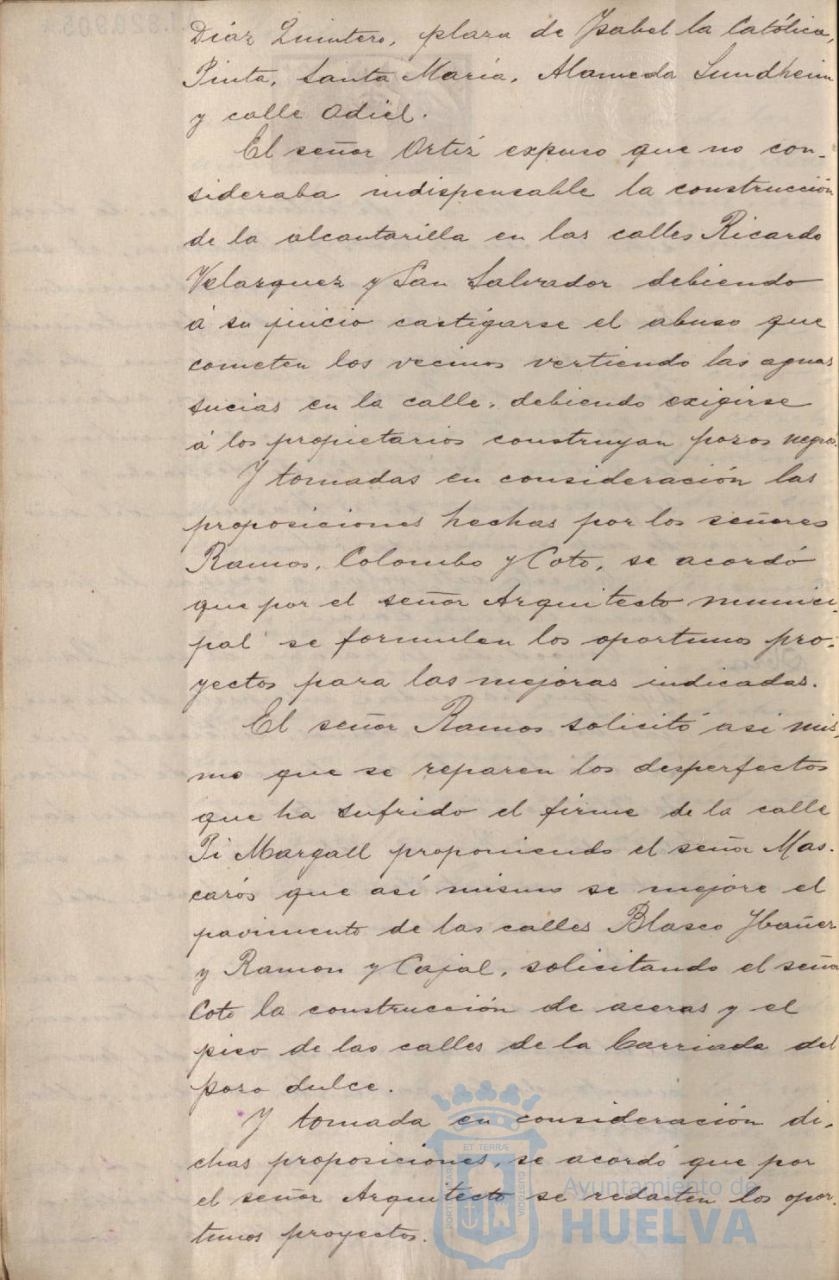 Díaz Quintero, plaza de Ysabel la Católica,
Pinta, Santa María, Alameda Sundheim
y calle Odiel.
El señor Ortíz expuso que no con-
sideraba indispensable la construcción
de la alcantarilla en las calles Ricardo
Velazquez y San Salvador debiendo
á su juicio castigarse el abuso que
cometen los vecinos vertiendo las aguas
sucias en la calle, debiendo exigirse
á los propietarios construyan pozos negros.
Y tomadas en consideración las
proposiciones hechas por los señores
Ramos, Colombo y Coto, se acordó
que por el señor Arquitecto munici-
pal se formulen los oportunos pro-
yectos para las mejoras indicadas.
El señor Ramos solicitó asi mis-
mo que se reparen los desperfectos
que ha sufrido el firme de la calle
Pi Margall proponiendo el señor Mas-
carós que así mismo se mejore el
pavimento de las calles Blasco Ybañez
y Ramon y Cajal, solicitando el señor
Coto la construcción de aceras y el
piso de las calles de la barriada del
pozo dulce.
Y tomada en consideración di-
chas proposiciones, se acordó que por
el señor Arquitecto se redacten los opor-
tunos proyectos.
Ayuntamiento de
HUELVA